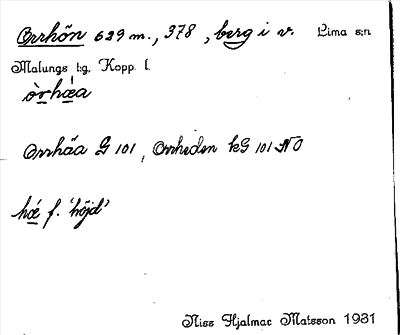 Orrhōn 629 m., 378, berg i v. Lima s:n
Malungs t:g, Kopp. l.
òrhæ̀a
Orrhåa G 101, Orrheden kG 101 NO
hǽ f. 'höjd'
Niss Hjalmar Matsson 1931